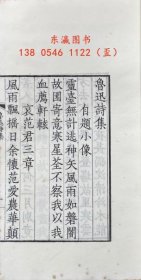 东瀛图书
138 0546 1122（孟）
魯迅詩集
有題小像
靈臺無計逃神矢風雨如磐闇
故園寄意寒星荃不察我以我
血薦軒轅
哀范君三章
風雨飄搖日余懷范愛農華顛